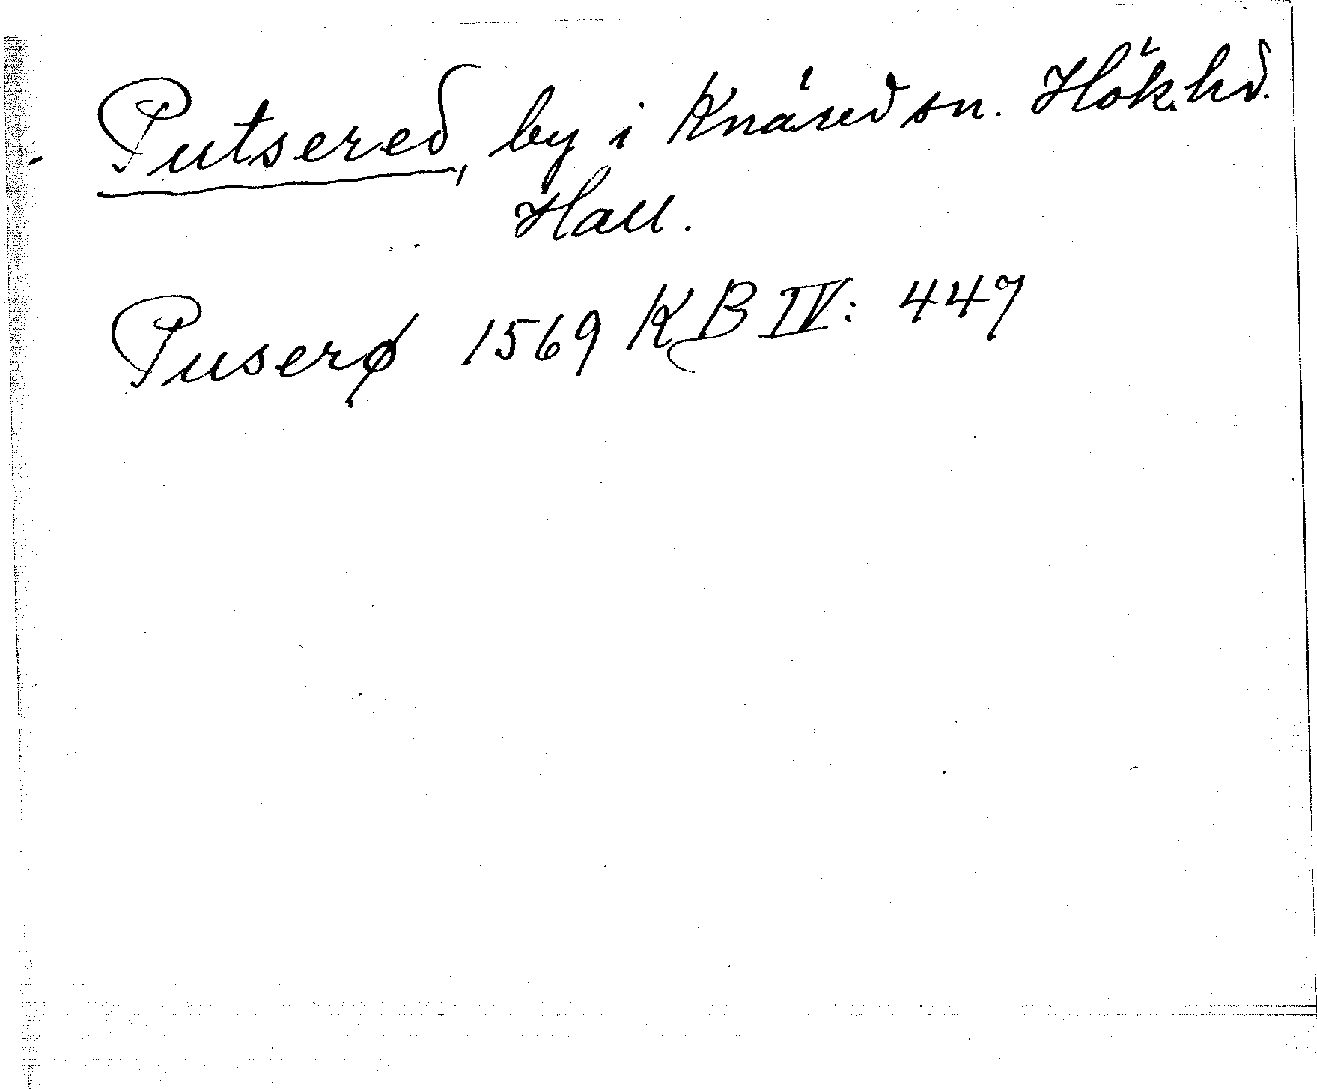 Putsered, by i Knäred sn. Hök.hd.
Hall.
Puserø 1569 KB IV: 447